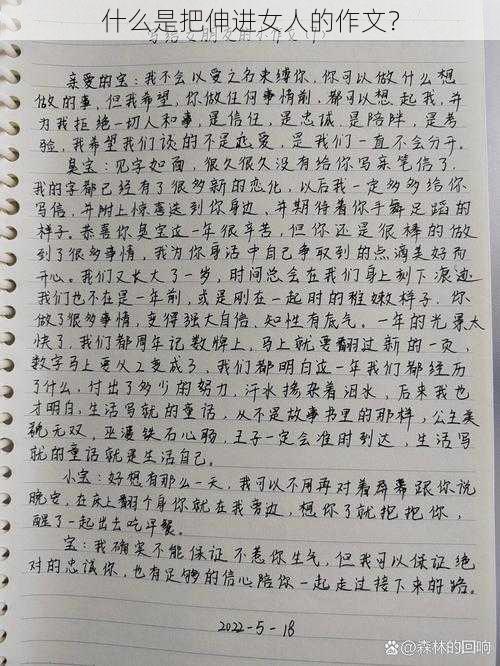 什么是把伸进女人的作文?
写给女朋友的小作文(1)
亲爱的宝:我不会以爱之名束缚你,你可以做什么想
做的事,但我希望,你做任何事情前,都可以想起我,并
为我拒绝一切人和事,是信任,是忠诚,是陪伴,是考
验,我希望我们谈的不是恋爱,是我们一直不会分开。
臭宝:见字如面,很久很久没有给你写亲笔信了,
我的字都已经有了很多新的变化,以后我一定多多给你
写信,并附上惊喜送到你身边、并期待着你手舞足蹈的
样子。恭喜你臭宝这一年很辛苦,但你还是很棒的做
到了很多事情,我为你身活中自己争取到的点滴美好而
开心。我们又长大了一岁,时间总会在我们身上刻下痕迹
我们也不在是一年前,或是刚在一起时的稚嫩样子.你
做了很多事情,变得强大自信、知性有底气。一年的光景太
快了,我们都周年记数牌上,马上就要翻过新的一页,
数字马上要从2变成了,我们都明白这一年我们都经历
了什么,付出了多少的努力,汗水掺杂着泪水,后来我也
才明白,生活写就的童话,从不是故事书里的那样,公主美
貌无双,巫婆铁石心肠,王子一定会准时到达,生活写
就的童话就是生活自己。
小宝:好想有那么一天,我可以不用再对着屏幕跟你说
晚安,在床上翻个身你就在我旁边,想你了就抱抱你,
醒了一起出去吃早餐。
宝:我确实不能保证不惹你生气,但我可以保证绝
对的忠诚你,也有足够的信心陪你一起走过接下来的路。
2022-5-18
@森林的回响